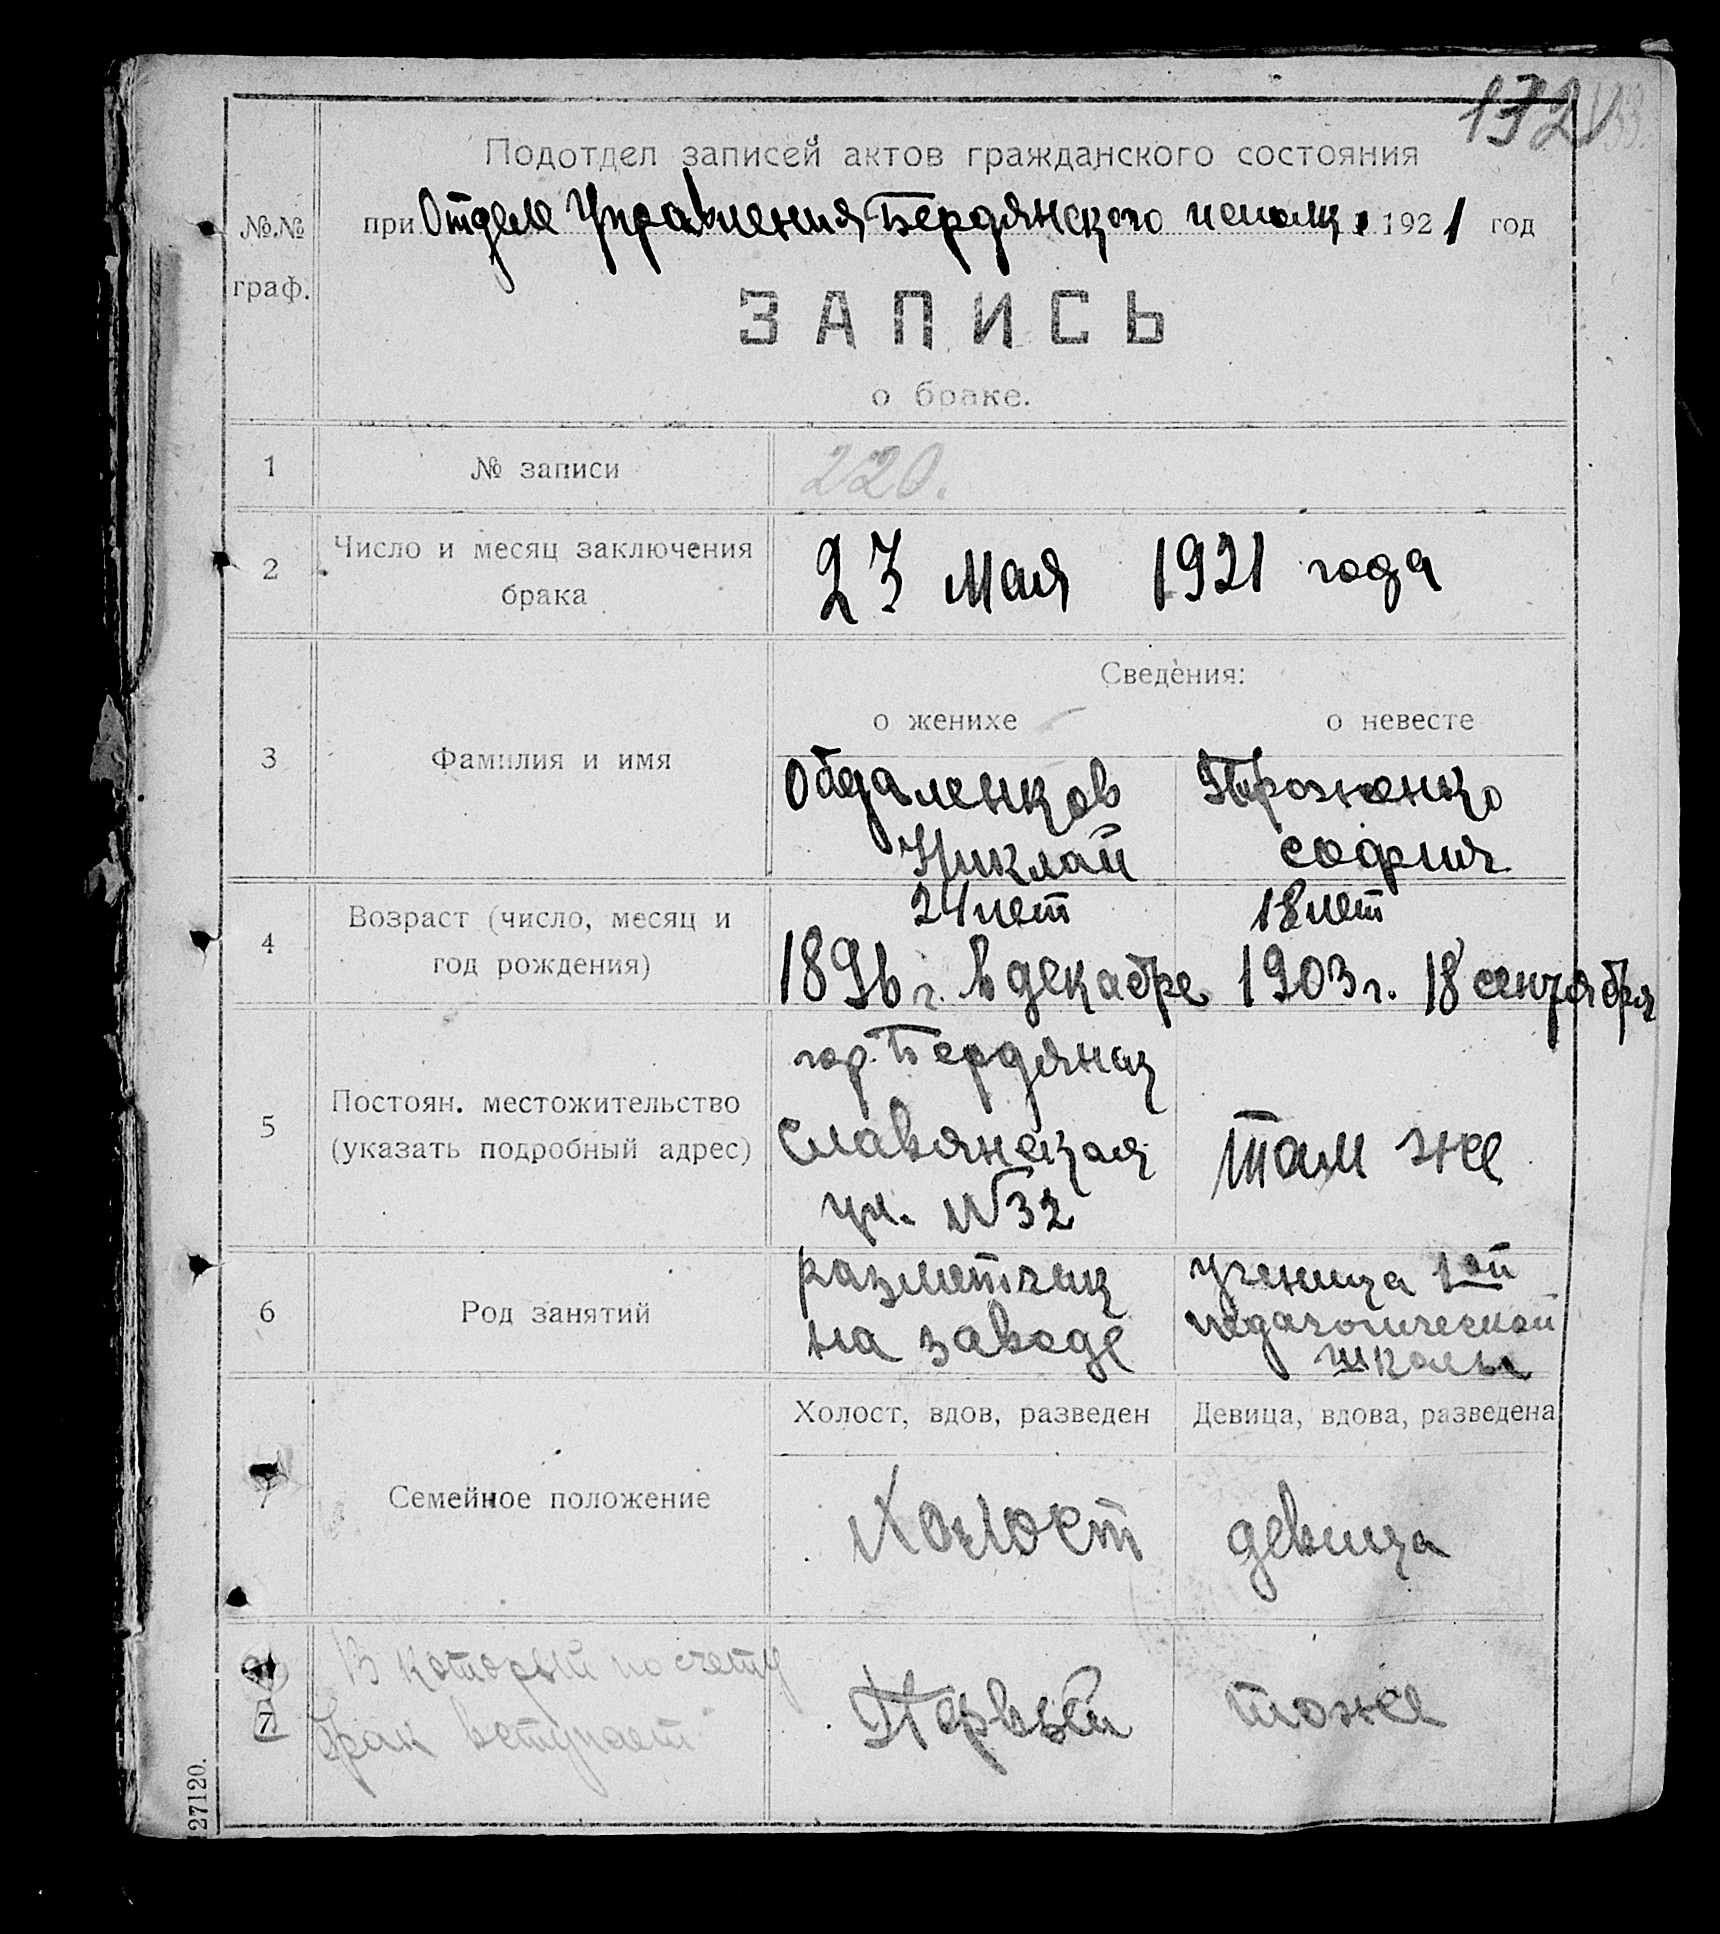 132
Подотдел записей актов гражданского состояния
при Отделе Управления Бердянского исполк. 1921 год
№№
граф.
ЗАПИСЬ
о браке.
1 № записи 220.
2 Число и месяц заключения
брака
23 Мая 1921 года
Сведения:
о женихе о невесте
3 Фамилия и имя
Обдаленков
Николай
Троженко
София
4 Возраст (число, месяц и
год рождения)
24 лет
1896 г. в декабре
18 лет
1903 г. 18 сентября
5 Постоян. местожительство
(указать подробный адрес)
гор. Бердянск
Славянская
ул. №32
там же
6 Род занятий
разметчик
на заводе
ученица 1ой
педагогической
школы
Холост, вдов, разведен Девица, вдова, разведена
7 Семейное положение
Холост девица
7 В который по счету
брак вступает
Первый тоже
27120.